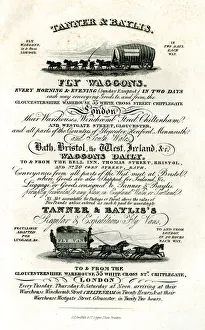 TANNER & BAYLIS.
FLY WAGGONS,
EVERY MORNING & EVENING (Sunday Excepted) IN TWO DAYS
each way conveying Goods to and from the
GLOUCESTERSHIRE WAREHOUSE 55 WHITE CROSS STREET CRIPPLEGATE,
London
their Warehouses, Winchcomb Street Cheltenham
AND WESTGATE STREET, GLOUCESTER,
and all parts of the Counties of Gloucester, Hereford, Monmouth
and South Wales
Bath, Bristol, the West, Ireland, &c.
WAGGONS DAILY,
TO & FROM THE BELL INN, THOMAS STREET, BRISTOL,
Conveyances from all parts of the West meet at Bristol
where Goods can also be Shipped for Ireland, &c.
Luggage or Goods consigned to Tanner & Baylis
TANNER & BAYLIS'S
Fly Vans,
TO & FROM THE
GLOUCESTERSHIRE WAREHOUSE 55 WHITE CROSS ST. CRIPPLEGATE,
LONDON
Every Tuesday, Thursday & Saturday at Noon, arriving at their
Warehouse Winchcomb Street CHELTENHAM in Twenty Hours & at their
Warehouse Westgate Street Gloucester in Twenty Two hours.